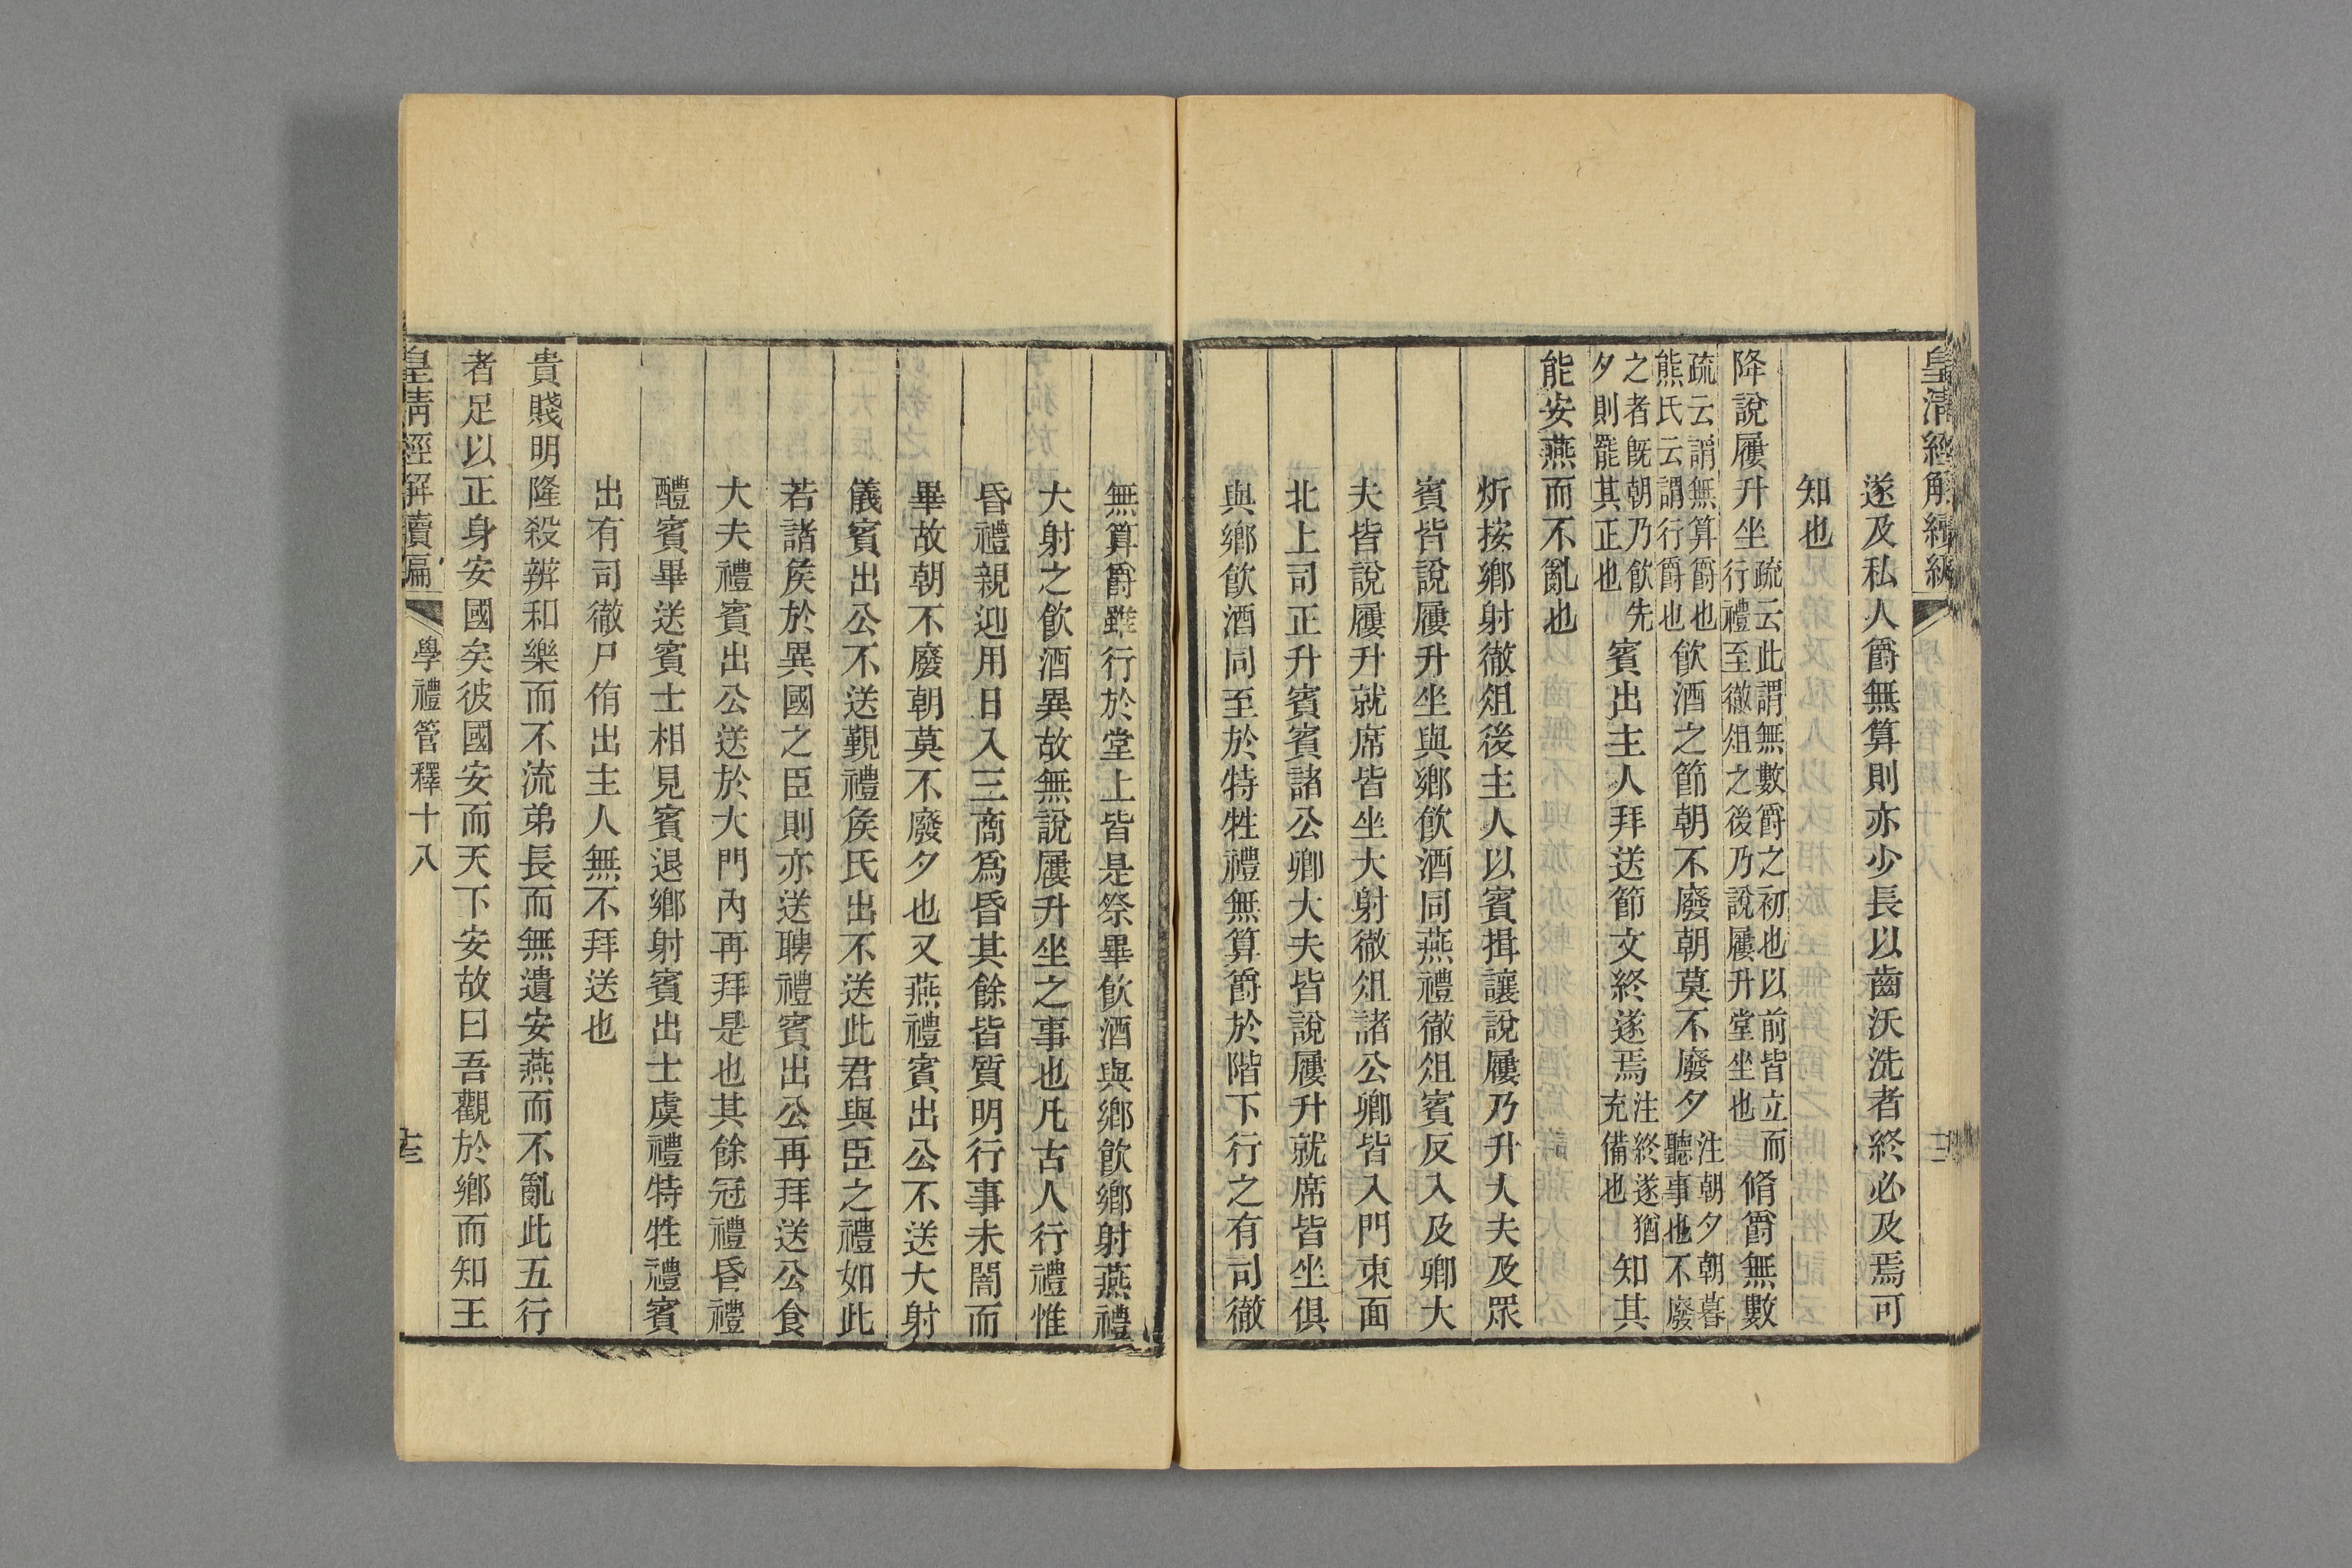 皇清經解續編
遂及私人爵無算則亦少長以齒沃洗者終必及焉可
知也
降說屨升坐疏云此謂無數爵之初也以前皆立而行禮至徹俎之後乃說屨升堂坐也脩爵無數
疏云謂無算爵也熊氏云謂行爵也飲酒之節朝不廢朝莫不廢夕注朝夕朝暮聽事也不廢
之者既朝乃飲先夕則罷其正也賓出主人拜送節文終遂焉注終遂猶充備也知其
能安燕而不亂也
炘按鄉射徹俎後主人以賓揖讓說屨乃升大夫及眾
賓皆說屨升坐與鄉飲酒同燕禮徹俎賓反入及卿大
夫皆說屨升就席皆坐大射徹俎諸公卿皆入門東面
北上司正升賓賓諸公卿大夫皆說屨升就席皆坐俱
與鄉飲酒同至於特牲禮無算爵於階下行之有司徹
無算爵雖行於堂上皆是祭畢飲酒與鄉飲鄉射燕禮
大射之飲酒異故無說屨升坐之事也凡古人行禮惟
昏禮親迎用日入三商為昏其餘皆質明行事未闇而
畢故朝不廢朝莫不廢夕也又燕禮賓出公不送大射
儀賓出公不送覲禮侯氏出不送此君與臣之禮如此
若諸侯於異國之臣則亦送聘禮賓出公再拜送公食
大夫禮賓出公送於大門內再拜是也其餘冠禮昏禮
醴賓畢送賓士相見賓退鄉射賓出士虞禮特牲禮賓
出有司徹尸侑出主人無不拜送也
貴賤明隆殺辨和樂而不流弟長而無遺安燕而不亂此五行
者足以正身安國矣彼國安而天下安故曰吾觀於鄉而知王
皇清經解續編 學禮管釋十八 十三